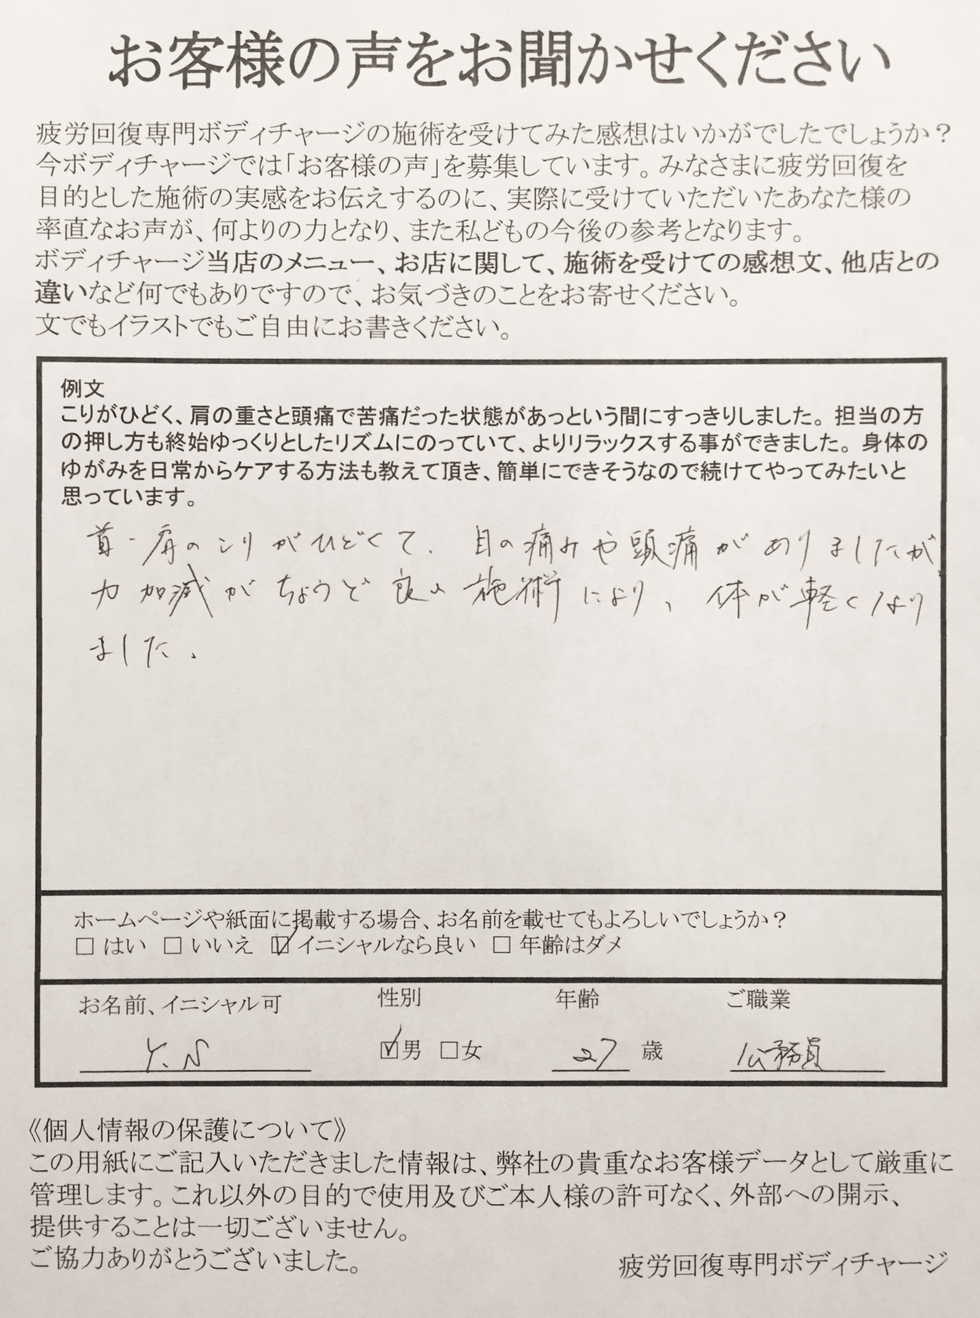 お客様の声をお聞かせください
疲労回復専門ボディチャージの施術を受けてみた感想はいかがでしたでしょうか？
今ボディチャージでは「お客様の声」を募集しています。みなさまに疲労回復を
目的とした施術の実感をお伝えするのに、実際に受けていただいたあなた様の
率直なお声が、何よりの力となり、また私どもの今後の参考となります。
ボディチャージ当店のメニュー、お店に関して、施術を受けての感想文、他店との
違いなど何でもありですので、お気づきのことをお寄せください。
文でもイラストでもご自由にお書きください。
例文
こりがひどく、肩の重さと頭痛で苦痛だった状態があっという間にすっきりしました。担当の方
の押し方も終始ゆっくりとしたリズムにのっていて、よりリラックスする事ができました。身体の
ゆがみを日常からケアする方法も教えて頂き、簡単にできそうなので続けてやってみたいと
思っています。
首・肩のこりがひどくて、目の痛みや頭痛がありましたが、
力加減がちょうど良い施術により、体が軽くなり
ました。
ホームページや紙面に掲載する場合、お名前を載せてもよろしいでしょうか？
□ はい □ いいえ ☑ イニシャルなら良い □ 年齢はダメ
お名前、イニシャル可 性別 年齢 ご職業
Y.N ☑男 □女 27 歳 公務員
《個人情報の保護について》
この用紙にご記入いただきました情報は、弊社の貴重なお客様データとして厳重に
管理します。これ以外の目的で使用及びご本人様の許可なく、外部への開示、
提供することは一切ございません。
ご協力ありがとうございました。
疲労回復専門ボディチャージ